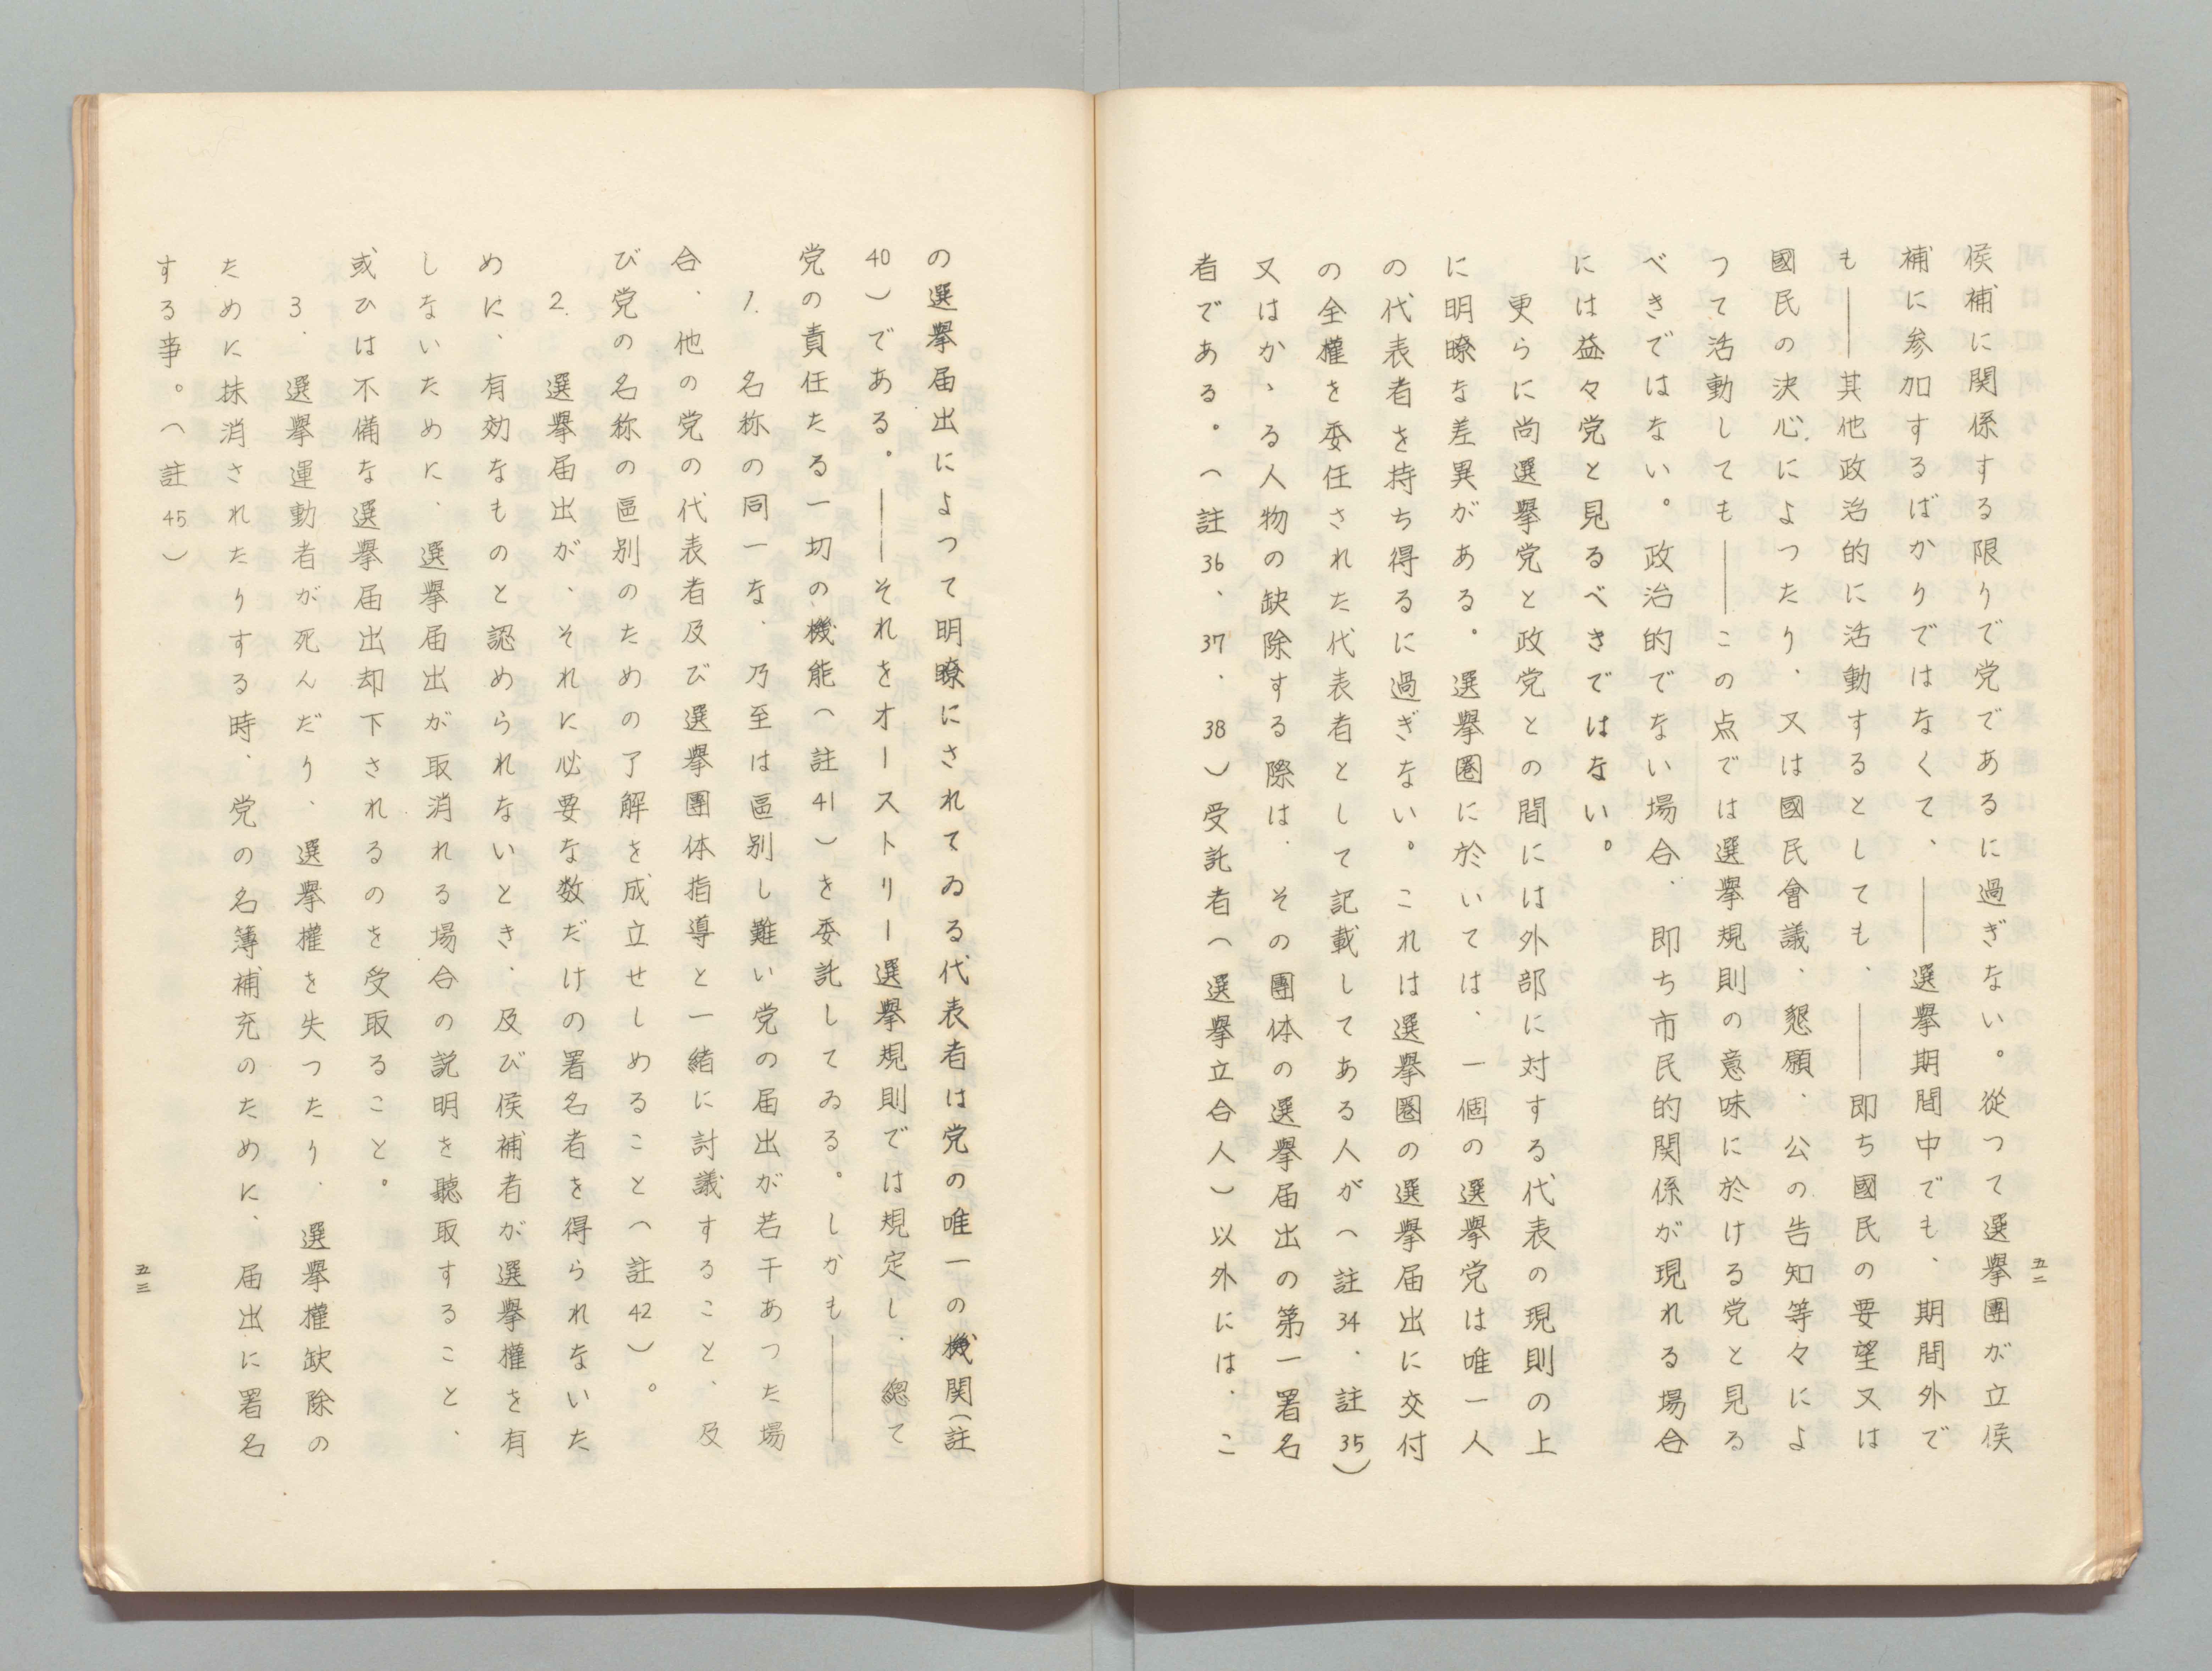 五二
侯補に関係する限りで党であるに過ぎない。従つて選擧團が立侯
補に参加するばかりではなくて、——選擧期間中でも、期間外で
も——其他政治的に活動するとしても、——即ち國民の要望又は
國民の決心によつたり、又は國民會議、懇願、公の告知等々によ
つて活動しても——この点では選擧規則の意味に於ける党と見る
べきではない。政治的でない場合、即ち市民的関係が現れる場合
には益々党と見るべきではない。
更らに尚選擧党と政党との間には外部に対する代表の現則の上
に明瞭な差異がある。選擧圏に於いては、一個の選擧党は唯一人
の代表者を持ち得るに過ぎない。これは選擧圏の選擧届出に交付
の全權を委任された代表者として記載してある人が（註34、註35）
又はかゝる人物の缺除する際は、その團体の選擧届出の第一署名
者である。（註36、37、38）受託者（選擧立合人）以外には、こ
の選擧届出によつて明瞭にされてゐる代表者は党の唯一の機関（註
40）である。——それをオーストリー選擧規則では規定し、總て
党の責任たる一切の機能（註41）を委託してゐる。しかも——
1. 名称の同一な、乃至は區别し難い党の届出が若干あつた場
合、他の党の代表者及び選擧團体指導と一緒に討議すること、及
び党の名称の區别のための了解を成立せしめること（註42）。
2. 選擧届出が、それに必要な数だけの署名者を得られないた
めに、有効なものと認められないとき、及び侯補者が選擧權を有
しないために、選擧届出が取消れる場合の説明を聽取すること、
或ひは不備な選擧届出却下されるのを受取ること。
3. 選擧運動者が死んだり、選擧權を失つたり、選擧權缺除の
ために抹消されたりする時、党の名簿補充のために、届出に署名
する事。（註45）
五三